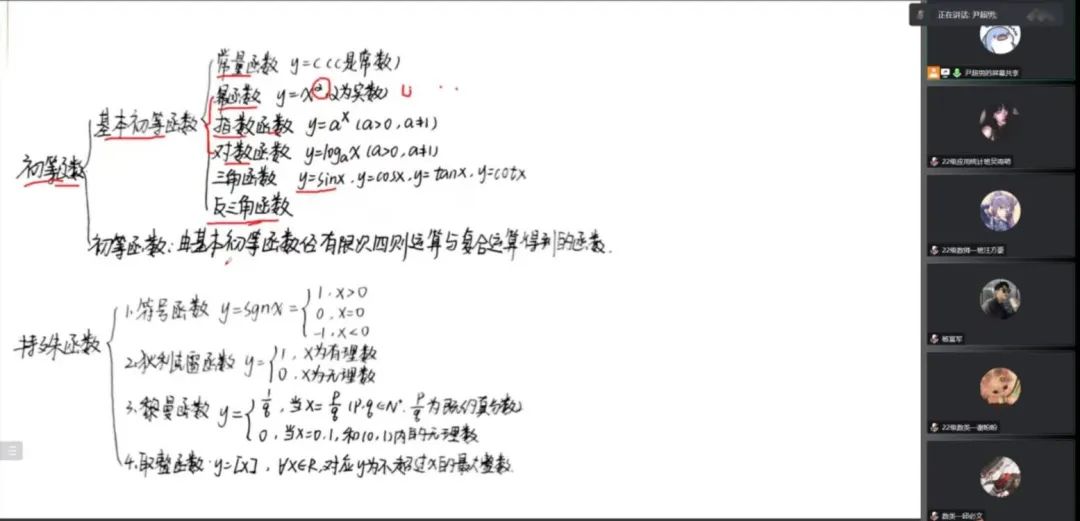 正在讲话: 尹超男;
常量函数 y=C (C是常数)
幂函数 y=x^α (α为实数)
基本初等函数
指数函数 y=a^x (a>0, a≠1)
对数函数 y=log_a x (a>0, a≠1)
初等函数
三角函数 y=sinx, y=cosx, y=tanx, y=cotx
反三角函数
初等函数: 由基本初等函数经有限次四则运算与复合运算得到的函数.
特殊函数
1.符号函数 y=sgnx= { 1, x>0
0, x=0
-1, x<0
2.狄利克雷函数 y= { 1, x为有理数
0, x为无理数
3.黎曼函数 y= { 1/q, 当x=p/q (p,q∈N⁺, p/q为既约真分数)
0, 当x=0,1,和(0,1)内的无理数
4.取整函数 y=[x], ∀x∈R,对应y为不超过x的最大整数.
尹超男的屏幕共享
22级应用统计
22级数师一
杨富军
22级数英一谢盼盼
数英一邱必文